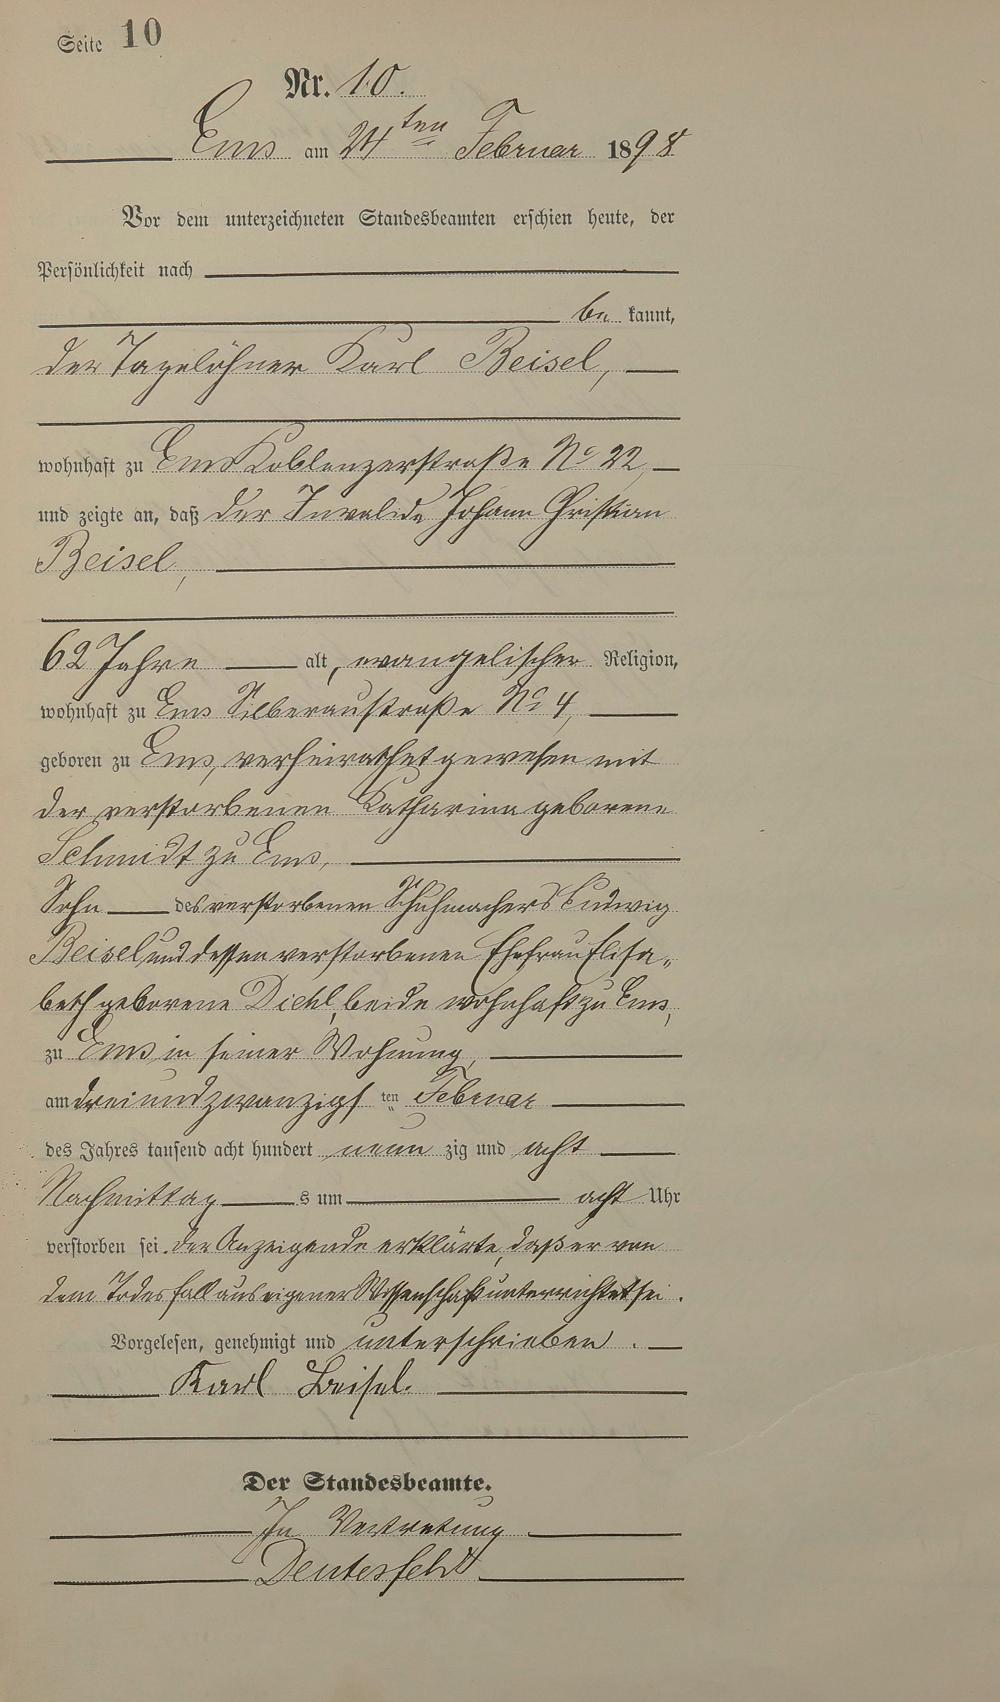 Seite 10
Nr. 10.
Ems am 24ten Februar 1898
Vor dem unterzeichneten Standesbeamten erschien heute, der
Persönlichkeit nach
be kannt,
der Tagelöhner Karl Beisel,
wohnhaft zu Ems Koblenzerstraße No 22,
und zeigte an, daß der Invalide Johann Christian
Beisel,
62 Jahre alt, evangelischer Religion,
wohnhaft zu Ems Silberaustraße No 4,
geboren zu Ems, verheirathet gewesen mit
der verstorbenen Katharina geborene
Schmidt zu Ems,
Sohn des verstorbenen Schuhmachers Ludwig
Beisel und dessen verstorbenen Ehefrau Elisa„
beth geborene Diehl, beide wohnhaft zu Ems,
zu Ems in seiner Wohnung,
am dreiundzwanzigs ten Februar
des Jahres tausend acht hundert neun zig und acht
Nachmittag s um acht Uhr
verstorben sei. Der Anzeigende erklärte, daß er von
dem Todesfall aus eigener Wissenschaft unterrichtet sei.
Vorgelesen, genehmigt und unterschrieben.
Karl Beisel.
Der Standesbeamte.
In Vertretung